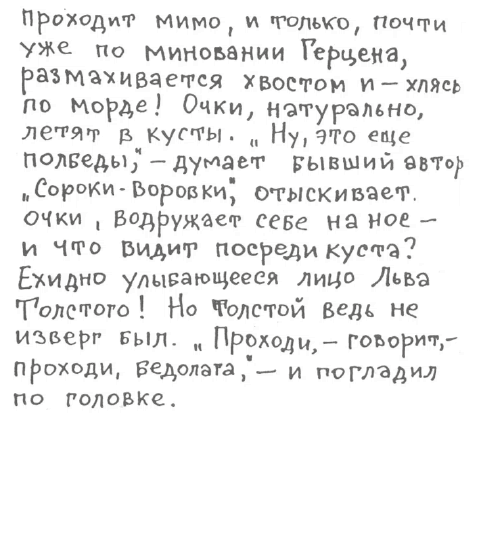 проходит мимо, и только, почти
уже по миновании Герцена,
размахивается хвостом и – хлясь
по морде! Очки, натурально,
летят в кусты. „Ну, это еще
полбеды,“ – думает бывший автор
„Сороки-Воровки“, отыскивает.
очки, водружает себе на нос –
и что видит посреди куста?
Ехидно улыбающееся лицо Льва
Толстого! Но Толстой ведь не
изверг был. „Проходи, – говорит, –
проходи, бедолага,“ – и погладил
по головке.